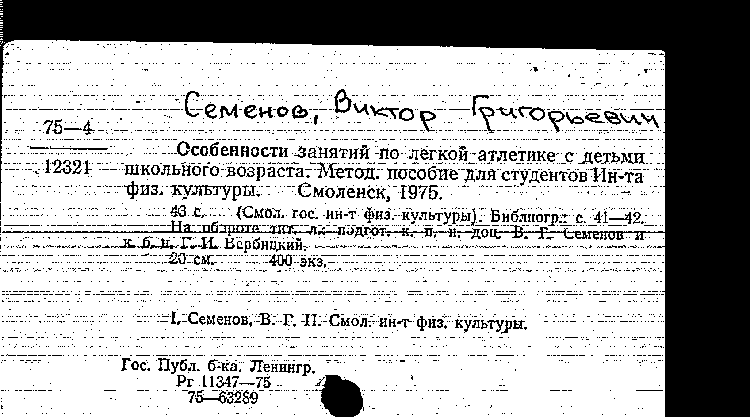 Семенов, Виктор Григорьевич
75—4
12321
Особенности занятий по легкой атлетике с детьми
школьного возраста. Метод. пособие для студентов Ин-та
физ. культуры. Смоленск, 1975.
43 с. (Смол. гос. ин-т физ. культуры). Библиогр.: с. 41—42.
На обороте тит. л.: подгот. к. п. н. доц. В. Г. Семенов и
к. б. н. Г. И. Вербицкий.
20 см. 400 экз.
I. Семенов, В. Г. II. Смол. ин-т физ. культуры.
Гос. Публ. б-ка. Ленингр.
Рг 11347—75
75—63289